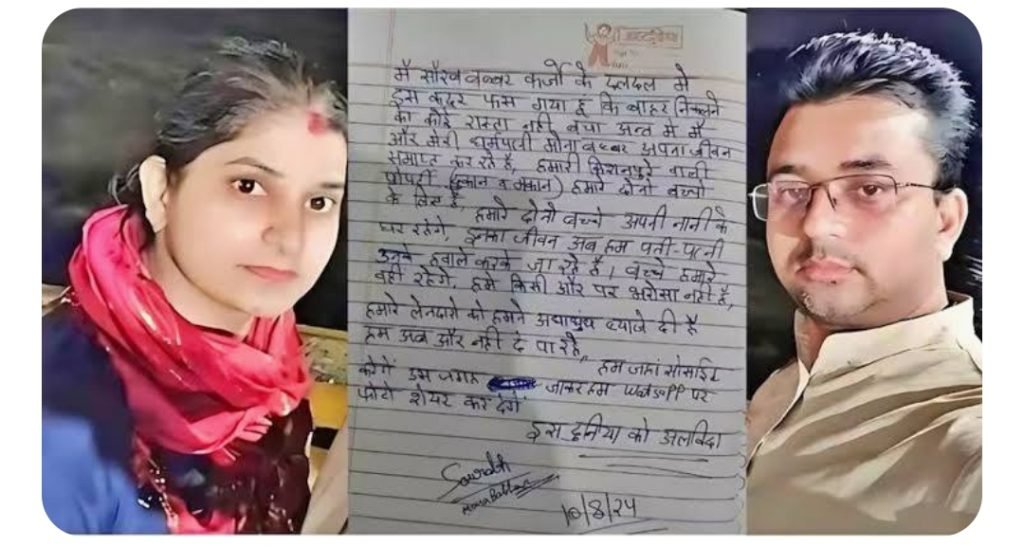 मै सौरव बब्बर कर्जो के दलदल मे
इस कदर फस गया हूं कि बाहर निकलने
का कोई रास्ता नही बचा अन्त मे मै
और मेरी धर्मपत्नी मोना बब्बर अपना जीवन
समाप्त कर रहे है, हमारी किशनपुरे वाली
प्रोपर्टी (दुकान व मकान) हमारे दोनो बच्चो
के लिए है, हमारे दोनो बच्चे अपनी नानी के
घर रहेगे, इनका जीवन अब हम पती-पत्नी
उनके हवाले करके जा रहे है। बच्चे हमारे
वही रहेगे, हमे किसी और पर भरोसा नही है,
हमारे लेनदारो को हमने अंधाधुंध ब्याजे दी है
हम अब और नही दे पा रहे, हम जहां सोसाईट
करेगें उस जगह जाकर हम WhatsAPP पर
फोटो शेयर कर देगें
इस दुनिया को अलविदा
Saurabh
Mona Babbar
10/8/24